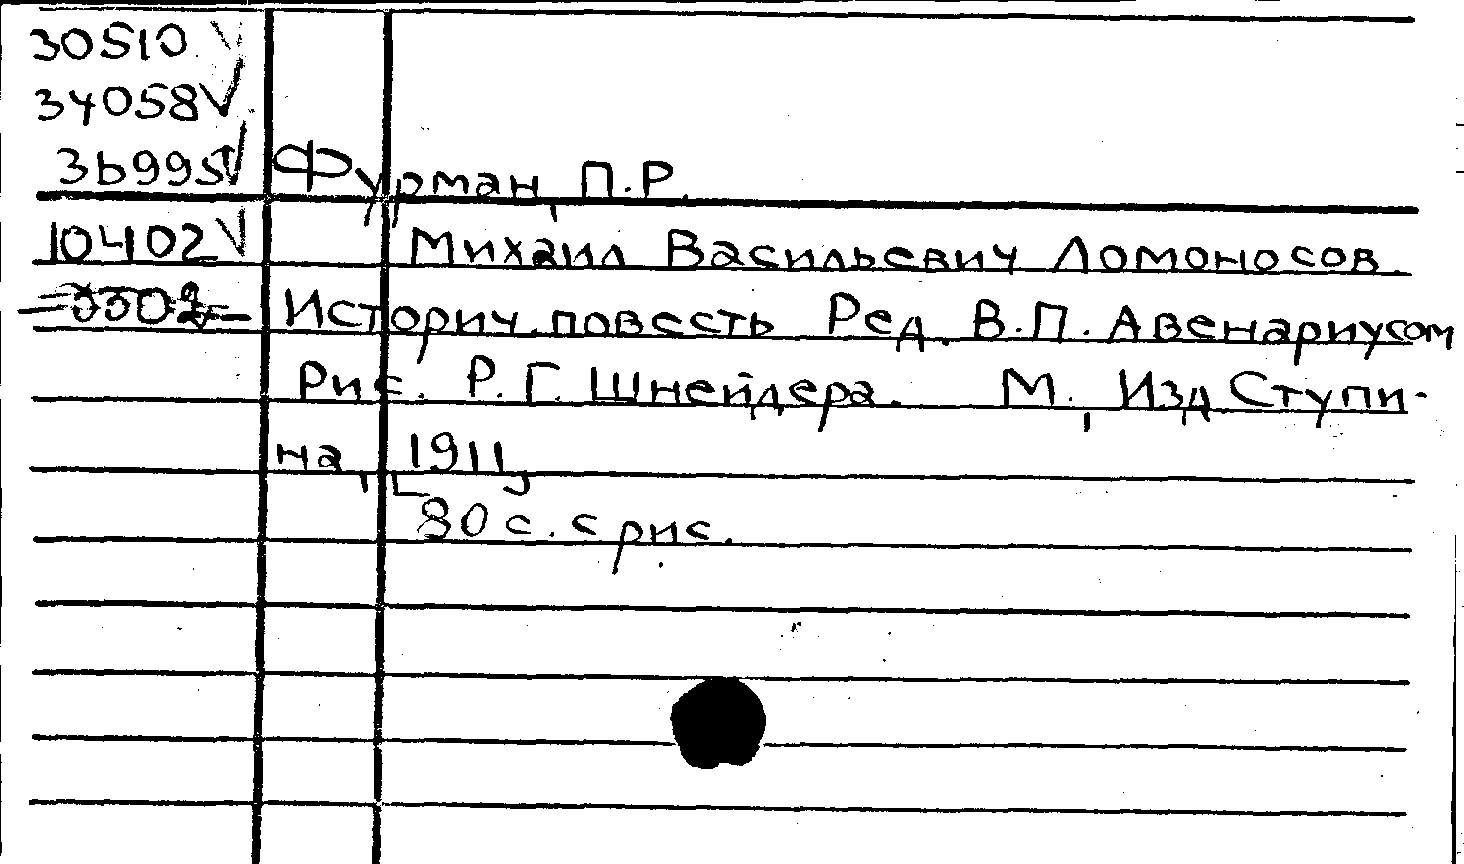 30510 V
34058 V
36995 V
Фурман, П.Р.
10402 V
Михаил Васильевич Ломоносов.
Историч. повесть Ред. В.П. Авенариусом
Рис. Р.Г. Шнейдера. М., Изд. Ступи-
на, 1911,
80 с. с рис.